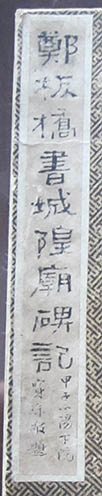 鄭板橋書城隍廟碑記
甲子